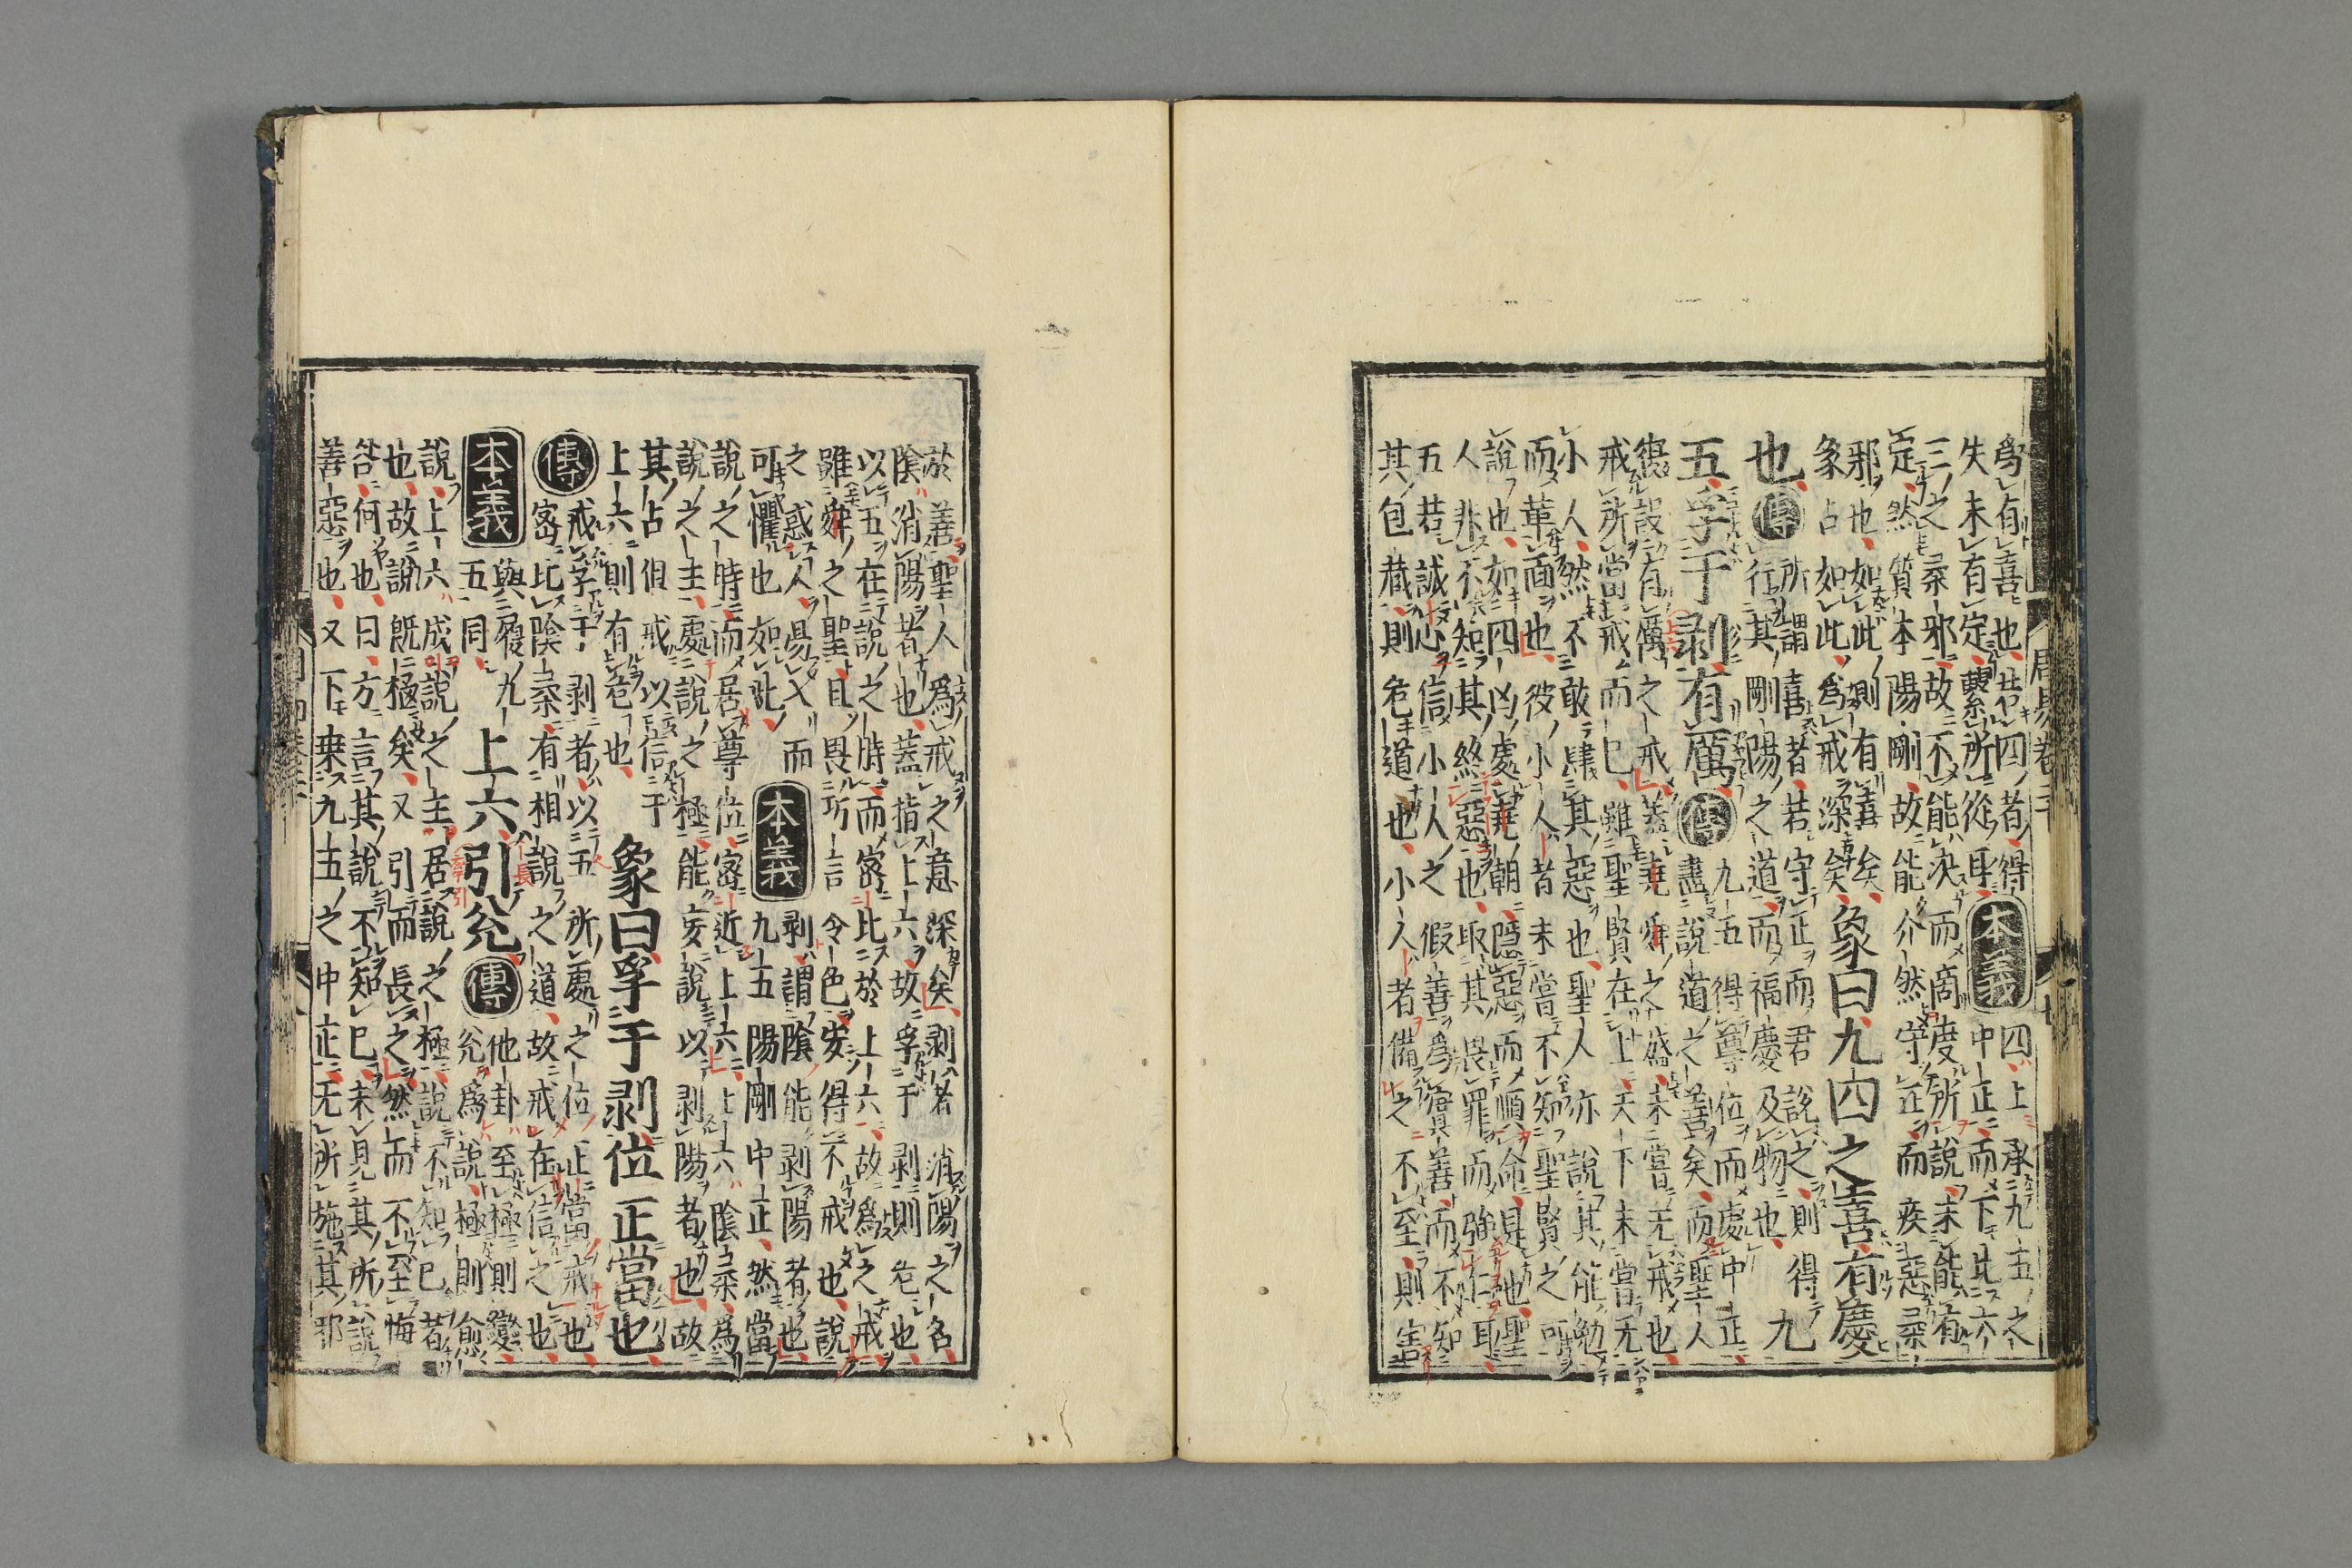 爲有喜也若四者得
失未有定繫所從耳
本義
四上承九五之
中正而下比六
三之柔邪故不能決而商度所說未能有
定然質本陽剛故能介然守正而疾惡柔
邪也如此則有喜矣
象占如此爲戒深矣
象曰九四之喜有慶
也
傳
所謂喜者若守正而君說之則得
行其剛陽之道而福慶及物也
九
五孚于剥有厲
傳
九五得尊位而處中正
盡說道之善矣而聖人
復設有厲之戒蓋堯舜之盛未嘗无戒也
戒所當戒而已雖聖賢在上天下未嘗无
小人然不敢肆其惡也聖人亦說其能勉
而革面也彼小人者未嘗不知聖賢之可
說也如四凶處堯朝隱惡而順命是也聖
人非不知其終惡也取其畏罪而強仁耳
五若誠心信小人之假善爲實善而不知
其包藏則危道也小人者備之不至則害
周易卷三
於善聖人爲戒之意深矣剥者消陽之名
陰消陽者也蓋指上六故孚于剥則危也
以五在說之時而密比於上六故爲之戒
雖舜之聖且畏巧言令色安得不戒也說
之惑人易入而
可懼也如此
本義
剥謂陰能剥陽者也
九五陽剛中正然當
說之時而居尊位密近上六上六陰柔爲
說之主處說之極能妄說以剥陽者也故
其占但戒以信于
上六則有危也
象曰孚于剥位正當也
傳
戒孚于剥者以五所處之位正當戒也
密比陰柔有相說之道故戒在信之也
本義
與履九
五同
上六引兊
傳
他卦至極則變
兊爲說極則愈
說上六成說之主居說之極說不知已者
也故說既極矣又引而長之然而不至悔
咎何也曰方言其說不知已未見其所說
善惡也又下乗九五之中正无所施其邪